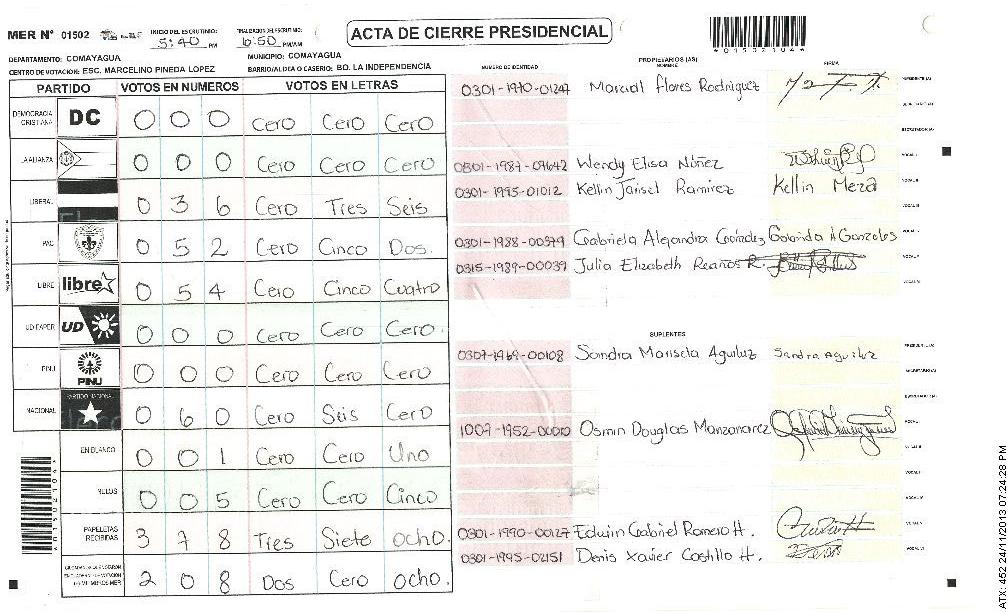 MER Nº 01502
INICIO DEL ESCRUTINIO: 5:40 PM
FINALIZACION DEL ESCRUTINIO: 6:50 PM/AM
ACTA DE CIERRE PRESIDENCIAL
*01502104*
DEPARTAMENTO: COMAYAGUA
MUNICIPIO: COMAYAGUA
CENTRO DE VOTACION: ESC. MARCELINO PINEDA LOPEZ
BARRIO/ALDEA O CASERIO: BO. LA INDEPENDENCIA
PARTIDO VOTOS EN NUMEROS VOTOS EN LETRAS
DEMOCRACIA CRISTIANA DC 0 0 0 Cero Cero Cero
LA ALIANZA 0 0 0 Cero Cero Cero
LIBERAL 0 3 6 Cero Tres Seis
PAC 0 5 2 Cero Cinco Dos.
LIBRE libre 0 5 4 Cero Cinco Cuatro
UD FAPER UD 0 0 0 Cero Cero Cero.
PINU PINU 0 0 0 Cero Cero Cero
NACIONAL PARTIDO NACIONAL 0 6 0 Cero Seis Cero
EN BLANCO 0 0 1 Cero Cero Uno
NULOS 0 0 5 Cero Cero Cinco
PAPELETAS RECIBIDAS 3 7 8 Tres Siete ocho.
2 0 8 Dos Cero ocho.
NUMERO DE IDENTIDAD
PROPIETARIOS (AS)
NOMBRE
FIRMA
0301-1970-01247 Marcial Flores Rodriguez PRESIDENTE (A)
SECRETARIO (A)
ESCRUTADOR (A)
0801-1987-09642 Wendy Elisa Núñez VOCAL I
0301-1995-01012 Kellin Jarisel Ramirez Kellin Meza VOCAL II
VOCAL III
0301-1988-00379 Gabriela Alejandra Gonzalez Gabriela A Gonzales VOCAL IV
0315-1989-00039 Julia Elizabeth Reaños R. VOCAL V
VOCAL VI
SUPLENTES
0307-1969-00108 Sandra Marisela Aguiluz Sandra Aguiluz PRESIDENTE (A)
SECRETARIO (A)
ESCRUTADOR (A)
Osmin Douglas Manzanarez VOCAL I
VOCAL II
VOCAL III
VOCAL IV
0301-1990-00127 Edwin Gabriel Romero H. VOCAL V
0301-1995-02151 Denis Xavier Castillo H. VOCAL VI
*01502104*
ATX: 452 24/11/2013 07:24:28 PM